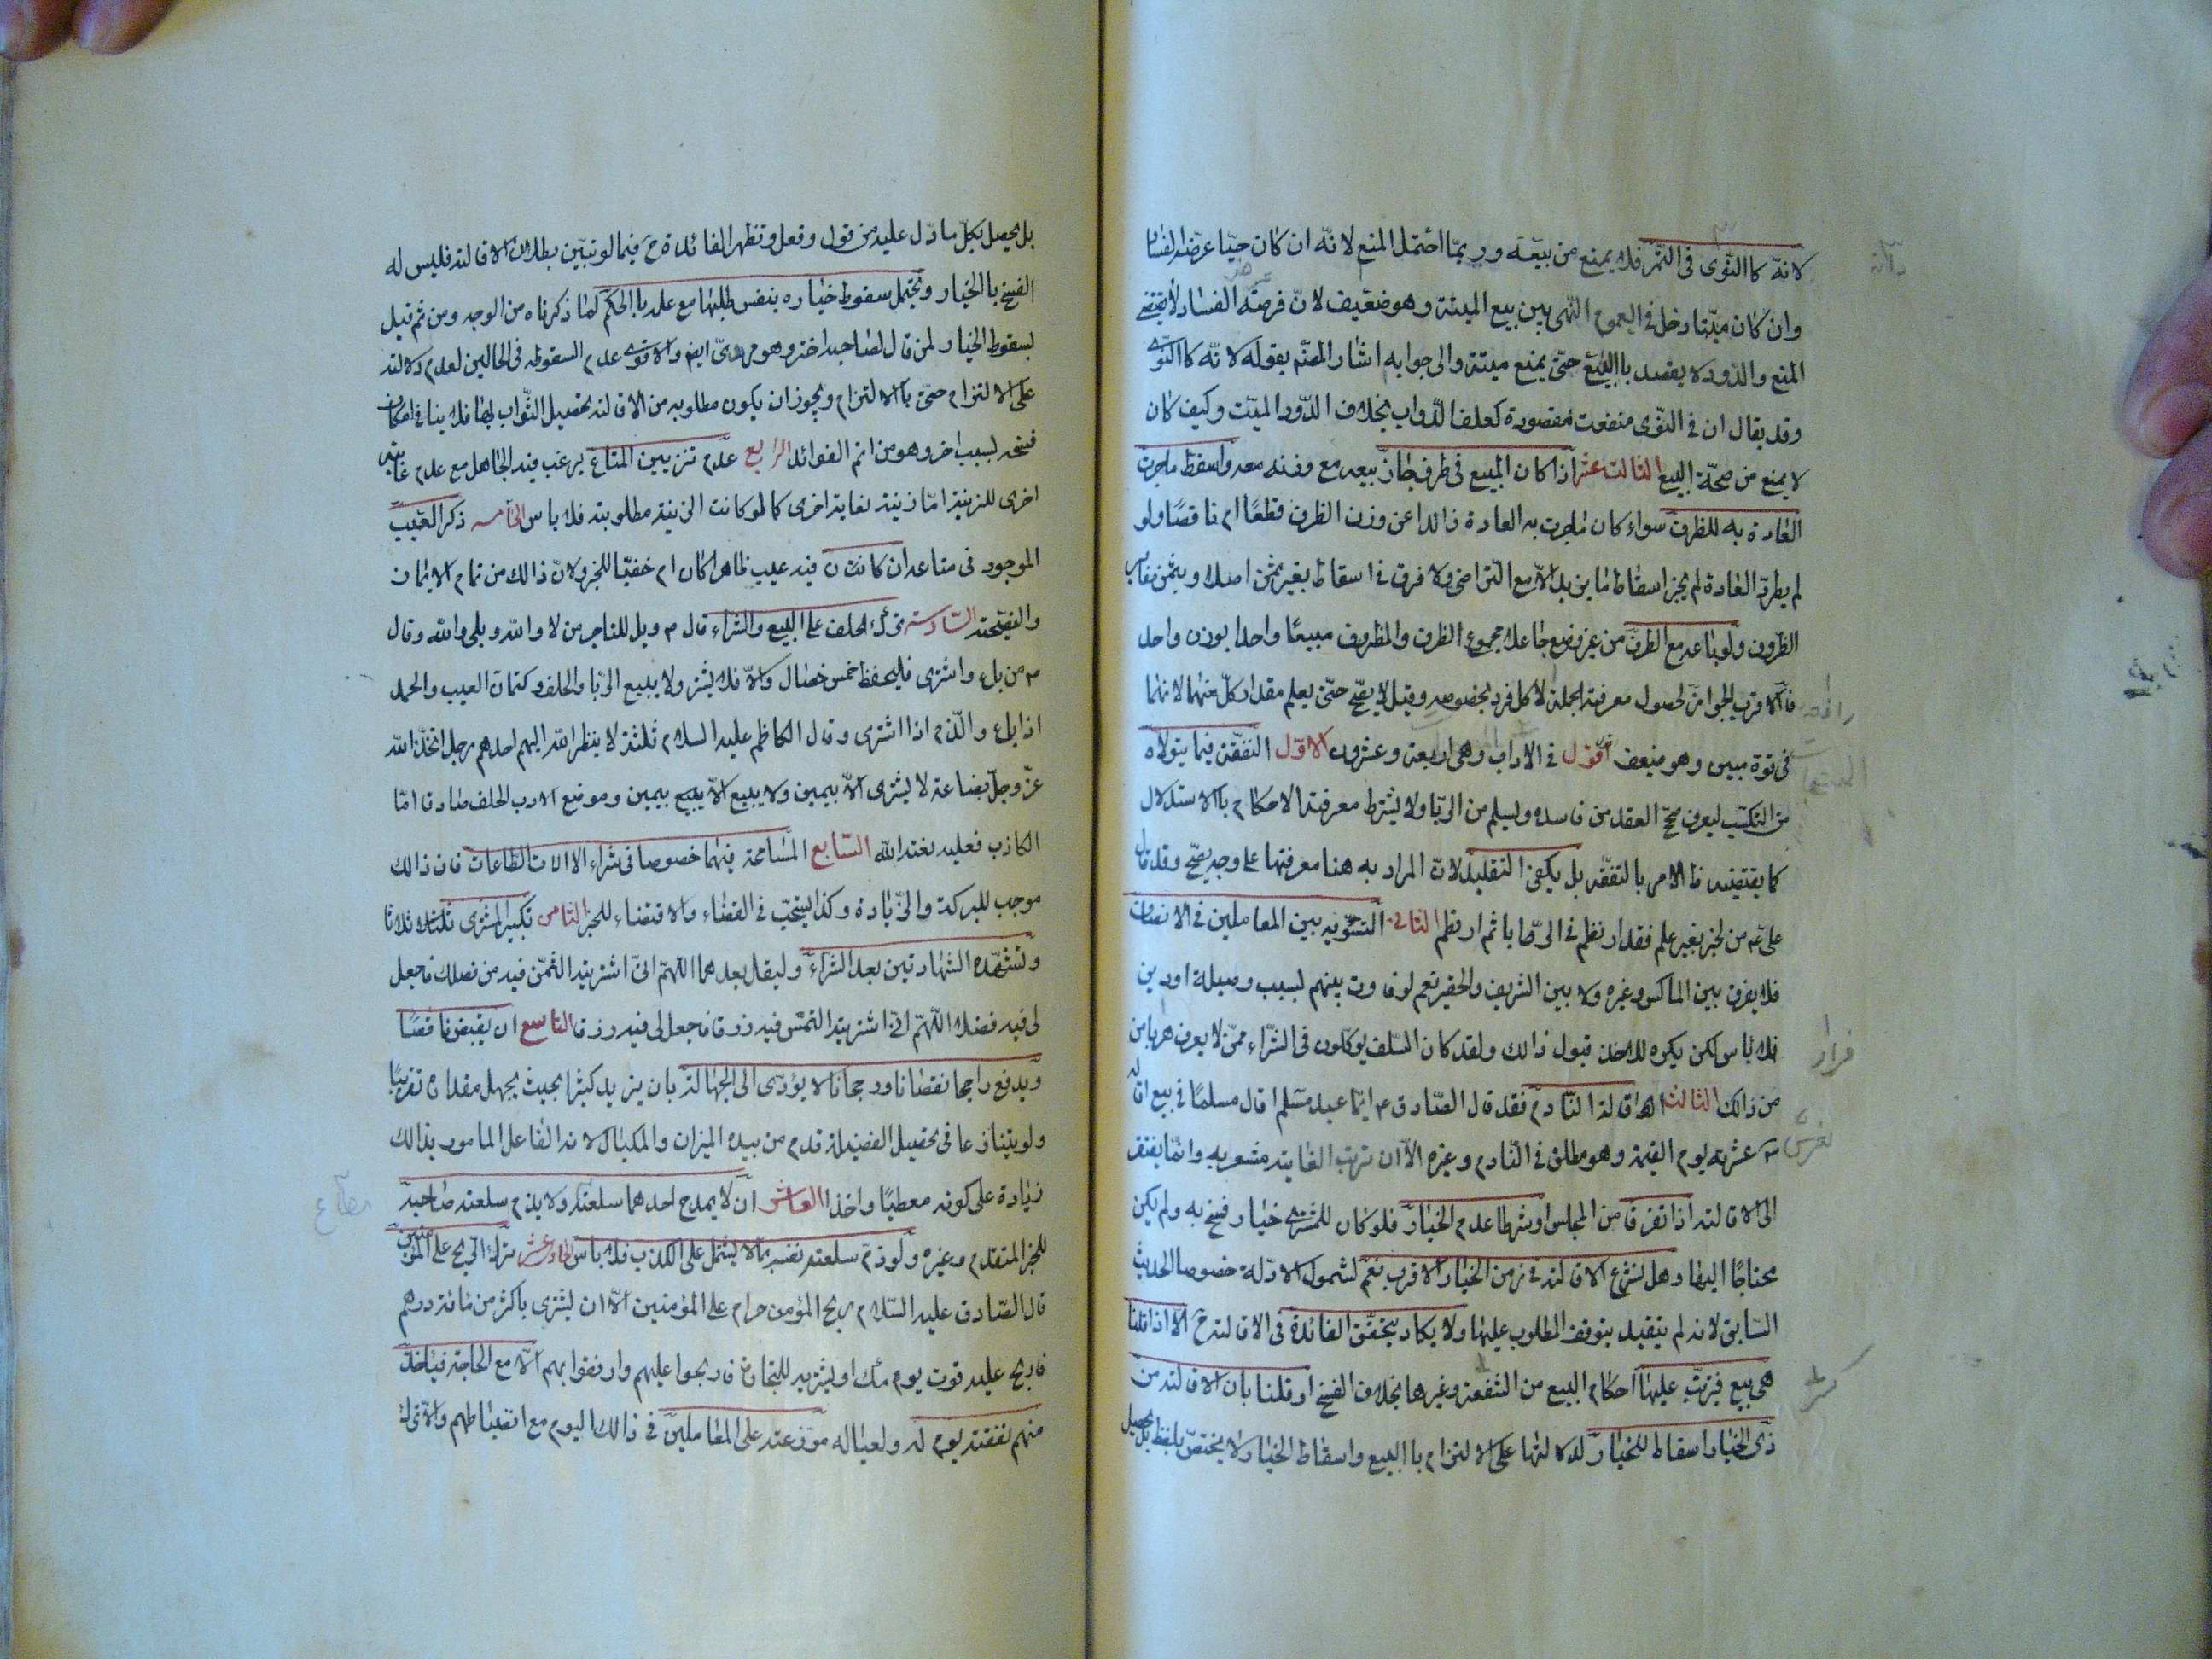 لانّه كالنّوى فى التّمر فلا يمنع من بيعه وربمّا احتمل المنع لانّه ان كان حيّا عرضه للفساد
وان كان ميّتا دخل فى العموم النّهى عن بيع الميتة وهو ضعيف لانّ عرضة الفساد لا يقتضى
المنع والدّود لا يقصد باالبيع حتّى يمنع ميتته والى جوابه اشار المصنّف بقوله لانّه كاالنّوى
وقد يقال ان فى النّوى منفعت مقصودة كعلف الدّواب بخلاف الدّود الميّت وكيف كان
لا يمنع من صحّة البيع الثالث عشر اذا كان المبيع فى ظرف جاز بيعه مع وزنه معه واسقط ماجرت
العادة به للظرف سواء كان ماجرت به العادة زائدا عن وزن الظرف قطعًا ام ناقصًا ولو
لم يطرد العادة لم يجز اسقاط مايزيد الاّ مع التّراضى ولا فرق فى اسقاط بغير ثمن اصلا وبثمن مغاير
الظروف ولو باعه مع الظرف من غير وضع جاعلا مجموع الظرف والمظروف مبيعًا واحدا بوزن واحد
فالاقرب الجواز لحصول معرفة الجملة لا كل فرد بخصوصه وقيل لا يصّح حتّى يعلم مقدار كلّ منهما لانهما
فى قوة مبيعين وهو ضعيف القول فى الاداب وهى اربعة وعشرون الاوّل التفقّه فيما يتولاه
من التكسّب ليعرف صحّ العقد من فاسده ويسلم من الرّبا ولا يشترط معرفة الاحكام باالاستدلال
كما يقتضيه ظ الامر بالتفقّه بل يكفى التقليد لانّ المراد به هنا معرفتها على وجه يصحّ وقد قال
علىّ ع من اتجر بغير علم فقد ارتطم فى الرّبا ثم ارتطم الثانى التسّويه بين المعاملين فى الانصاف
فلا يفرق بين الماكس وغيره ولا بين الشريف والحقير نعم لو فاوت بينهم لسبب فضيلة او دين
فلا باس لكن يكره للاخذ قبول ذالك ولقد كان السّلف يوكّلون فى الشّراء ممنّ لا يعرف هربا من
من ذالك الثالث اقالة النّادم فقد قال الصّادق ع ايّما عبد مسلم اقال مسلمًا فى بيع اقاله
اللّه عثرته يوم القيمة وهو مطلق فى النّادم وغيره الاّ ان ترتب الغاية مشعر به وانّما يفتقر
الى الاقالته اذا تفرقا من المجلس او شرطا عدم الخيار فلو كان للمشترى خيار فسخ به ولم يكن
محتاجًا اليها وهل تشرع الاقالته فى زمن الخيار الاقرب نعم لشمول الادّلة خصوصا الحديث
السّابق لانه لم يتقيد بتوقف المطلوب عليها ولا يكاد يتحقّق الفائدة فى الاقالته ح الاّ اذا قلنا
هى بيع فيترتّب عليها احكام البيع من الشفعة وغيرها بخلاف الفسخ او قلنا بان الاقالته من
ذى الخيار اسقاط للخيار لدلالتها على الالتزام باالبيع واسقاط الخيار لا يختصّ بلفظ بل يحصل
بل يحصل بكلّ ما دّل عليه من قول وفعل وتظهر الفائدة ح فيما لو تبيّن بطلان الاقالته فليس له
الفسخ باالخيار ويحتمل سقوط خياره بنفس طلبها مع علمه باالحكم لما ذكرناه من الوجه ومن ثم قيل
بسقوط الخيار لمن قال لصاحبه اختر وهو مروىّ ايضا والاقوى عدم السقوط فى الحالين لعدم دلالته
على الالتزام حتّى باالالتزام ويجوز ان يكون مطلوبه من الاقالته تحصيل الثّواب بها فلا ينافى امكان
فسخه بسبب اخر وهو من اتم الفوائد الرّابع عدم تزيين المتاع ليرغب فيه الجاهل مع عدم غاية
اخرى للزينة امّا زينته لغاية اخرى كما لو كانت الزينة مطلوبته فلا باس الخامسه ذكر العيب
الموجود فى متاعه ان كان فيه عيب ظاهرا كان ام خفيّا للخبر ولانّ ذالك من تمام الايمان
والنصيحة السّادسة ترك الحلف على البيع والشراء قال ص ويل للتاجر من لا واللّه وبلى واللّه وقال
ص من باع واشترى فليحفظ خمس خصال والاّ فلا يشتر ولا يبيع الرّبا والحلف وكتمان العيب والحمد
اذا باع والذّم اذا اشترى وقال الكاظم عليه السلام ثلثة لا ينظر اللّه اليهم احدهم رجل اتخذ اللّه
عزّ وجلّ بضاعة لا يشترى الاّ بيمين ولا يبيع الاّ يبيع بيمين وموضع الادب الحلف صادقا امّا
الكاذب فعليه لعنة اللّه السّابع المسّامحة فيهما خصوصا فى شراء الالات الطّاعات فان ذالك
موجب للبركة والزّيادة وكذا يستحبّ فى القضاء والاقتضاء للخبر الثّامن تكبير المشترى ثلثا
وتشهّده الشهادتين بعد الشراء وليقل بعدهما اللّهمّ انىّ اشتريته التمس فيه من فضلك فاجعل
لى فيه فضلا اللّهمّ انّى اشتريته التمسّ فيه رزقا فاجعل لى فيه رزقا التاسع ان يقبض ناقصًا
ويدفع راجحا نقصانا ورجحانا لا يؤدّى الى الجهالة بان يزيد كثيرا بحيث يجهل مقداره تقريبًا
ولو يتنازعا فى تحصيل الفضيلة قدم من بيده الميزان والمكيال لانه الفاعل المامور بذالك
زيادة على كونه معطيًا واخذا العاشر ان لا يمدح احدهما سلعته ولا يذم سلعته صاحبه
للخبر المتقدم وغيره ولو ذم سلعته نفسه بما لا يشتمل على الكذب فلا باس الحادى عشر ترك الرّبح على المؤمنين
قال الصّادق عليه السّلام ربح المؤمن حرام على المؤمنين الاّ ان يشترى باكثر من مائة درهم
فاربح عليه قوت يومك او يشتريه للتجارة فاربحوا عليهم وارفقوا بهم الاّ مع الحاجة فياخذ
منهم نفقته يوم له ولعياله موّزعته على المعاملين فى ذالك اليوم مع انضباطهم والاّ ترك